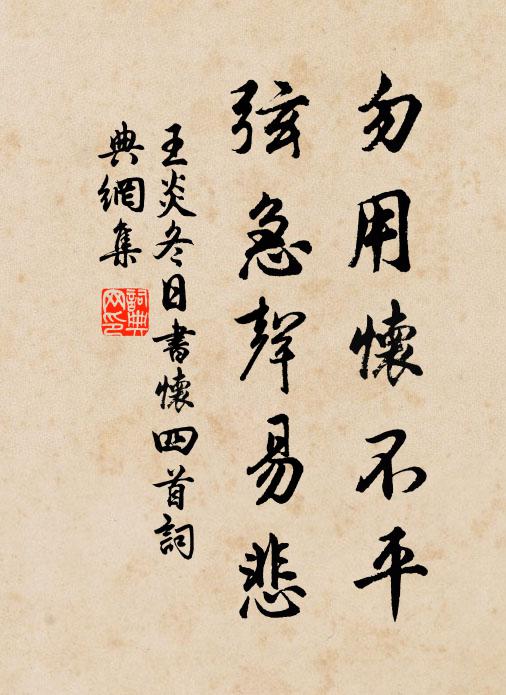 勿用懷不平
弦急聲易悲
王炎冬日書懷四首詞
典網集
詞典網印